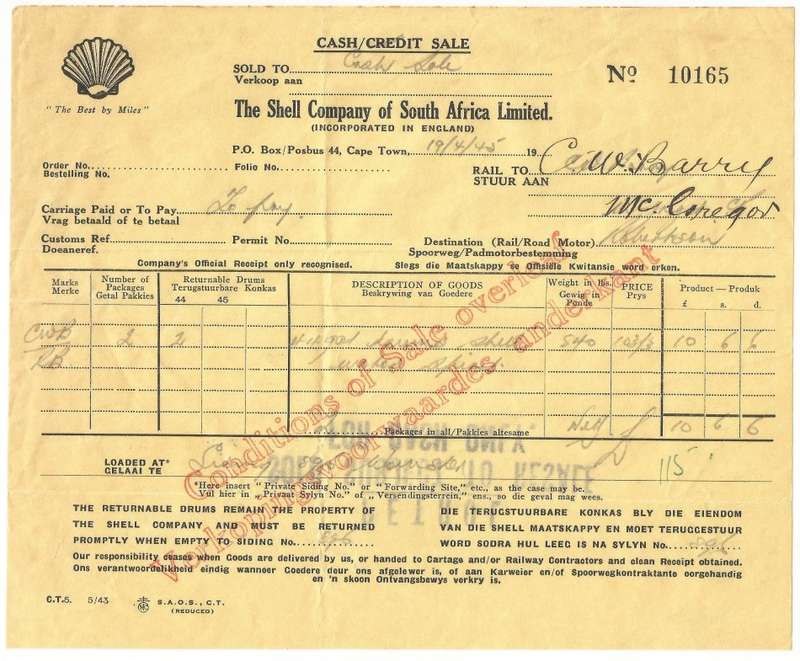 CASH/CREDIT SALE
SOLD TO Cash Sale
Verkoop aan
No 10165
"The Best by Miles"
The Shell Company of South Africa Limited.
(INCORPORATED IN ENGLAND)
P.O. Box/Posbus 44, Cape Town, 19/4/45 19
Order No.
Bestelling No.
Folio No.
RAIL TO
STUUR AAN
C.W. Barry
McGregor
Carriage Paid or To Pay To pay.
Vrag betaald of te betaal
Customs Ref.
Doeaneref.
Permit No.
Destination (Rail/Road Motor) Robertson
Spoorweg/Padmotorbestemming
Company's Official Receipt only recognised.
Slegs die Maatskappy se Offisiële Kwitansie word erken.
Marks
Merke
Number of
Packages
Getal Pakkies
Returnable Drums
Terugstuurbare Konkas
44 45
DESCRIPTION OF GOODS
Beskrywing van Goedere
Weight in lbs.
Gewig in
Ponde
PRICE
Prys
Product — Produk
£ s. d.
CWB 2 2 540 10 6 6
RB
Packages in all/Pakkies altesame Nett £ 10 6 6
LOADED AT*
GELAAI TE
115
*Here insert "Private Siding No." or "Forwarding Site," etc., as the case may be.
Vul hier in „Privaat Sylyn No." of „Versendingsterrein," ens., so die geval mag wees.
THE RETURNABLE DRUMS REMAIN THE PROPERTY OF
THE SHELL COMPANY AND MUST BE RETURNED
PROMPTLY WHEN EMPTY TO SIDING No.
DIE TERUGSTUURBARE KONKAS BLY DIE EIENDOM
VAN DIE SHELL MAATSKAPPY EN MOET TERUGGESTUUR
WORD SODRA HUL LEEG IS NA SYLYN No.
Our responsibility ceases when Goods are delivered by us, or handed to Cartage and/or Railway Contractors and clean Receipt obtained.
Ons verantwoordelikheid eindig wanneer Goedere deur ons afgelewer is, of aan Karweier en/of Spoorwegkontraktante oorgehandig
en 'n skoon Ontvangsbewys verkry is.
C.T.5. 5/43 S.A.O.S., C.T.
(REDUCED)
Conditions of Sale overleaf
Verkopingsvoorwaardes anderkant